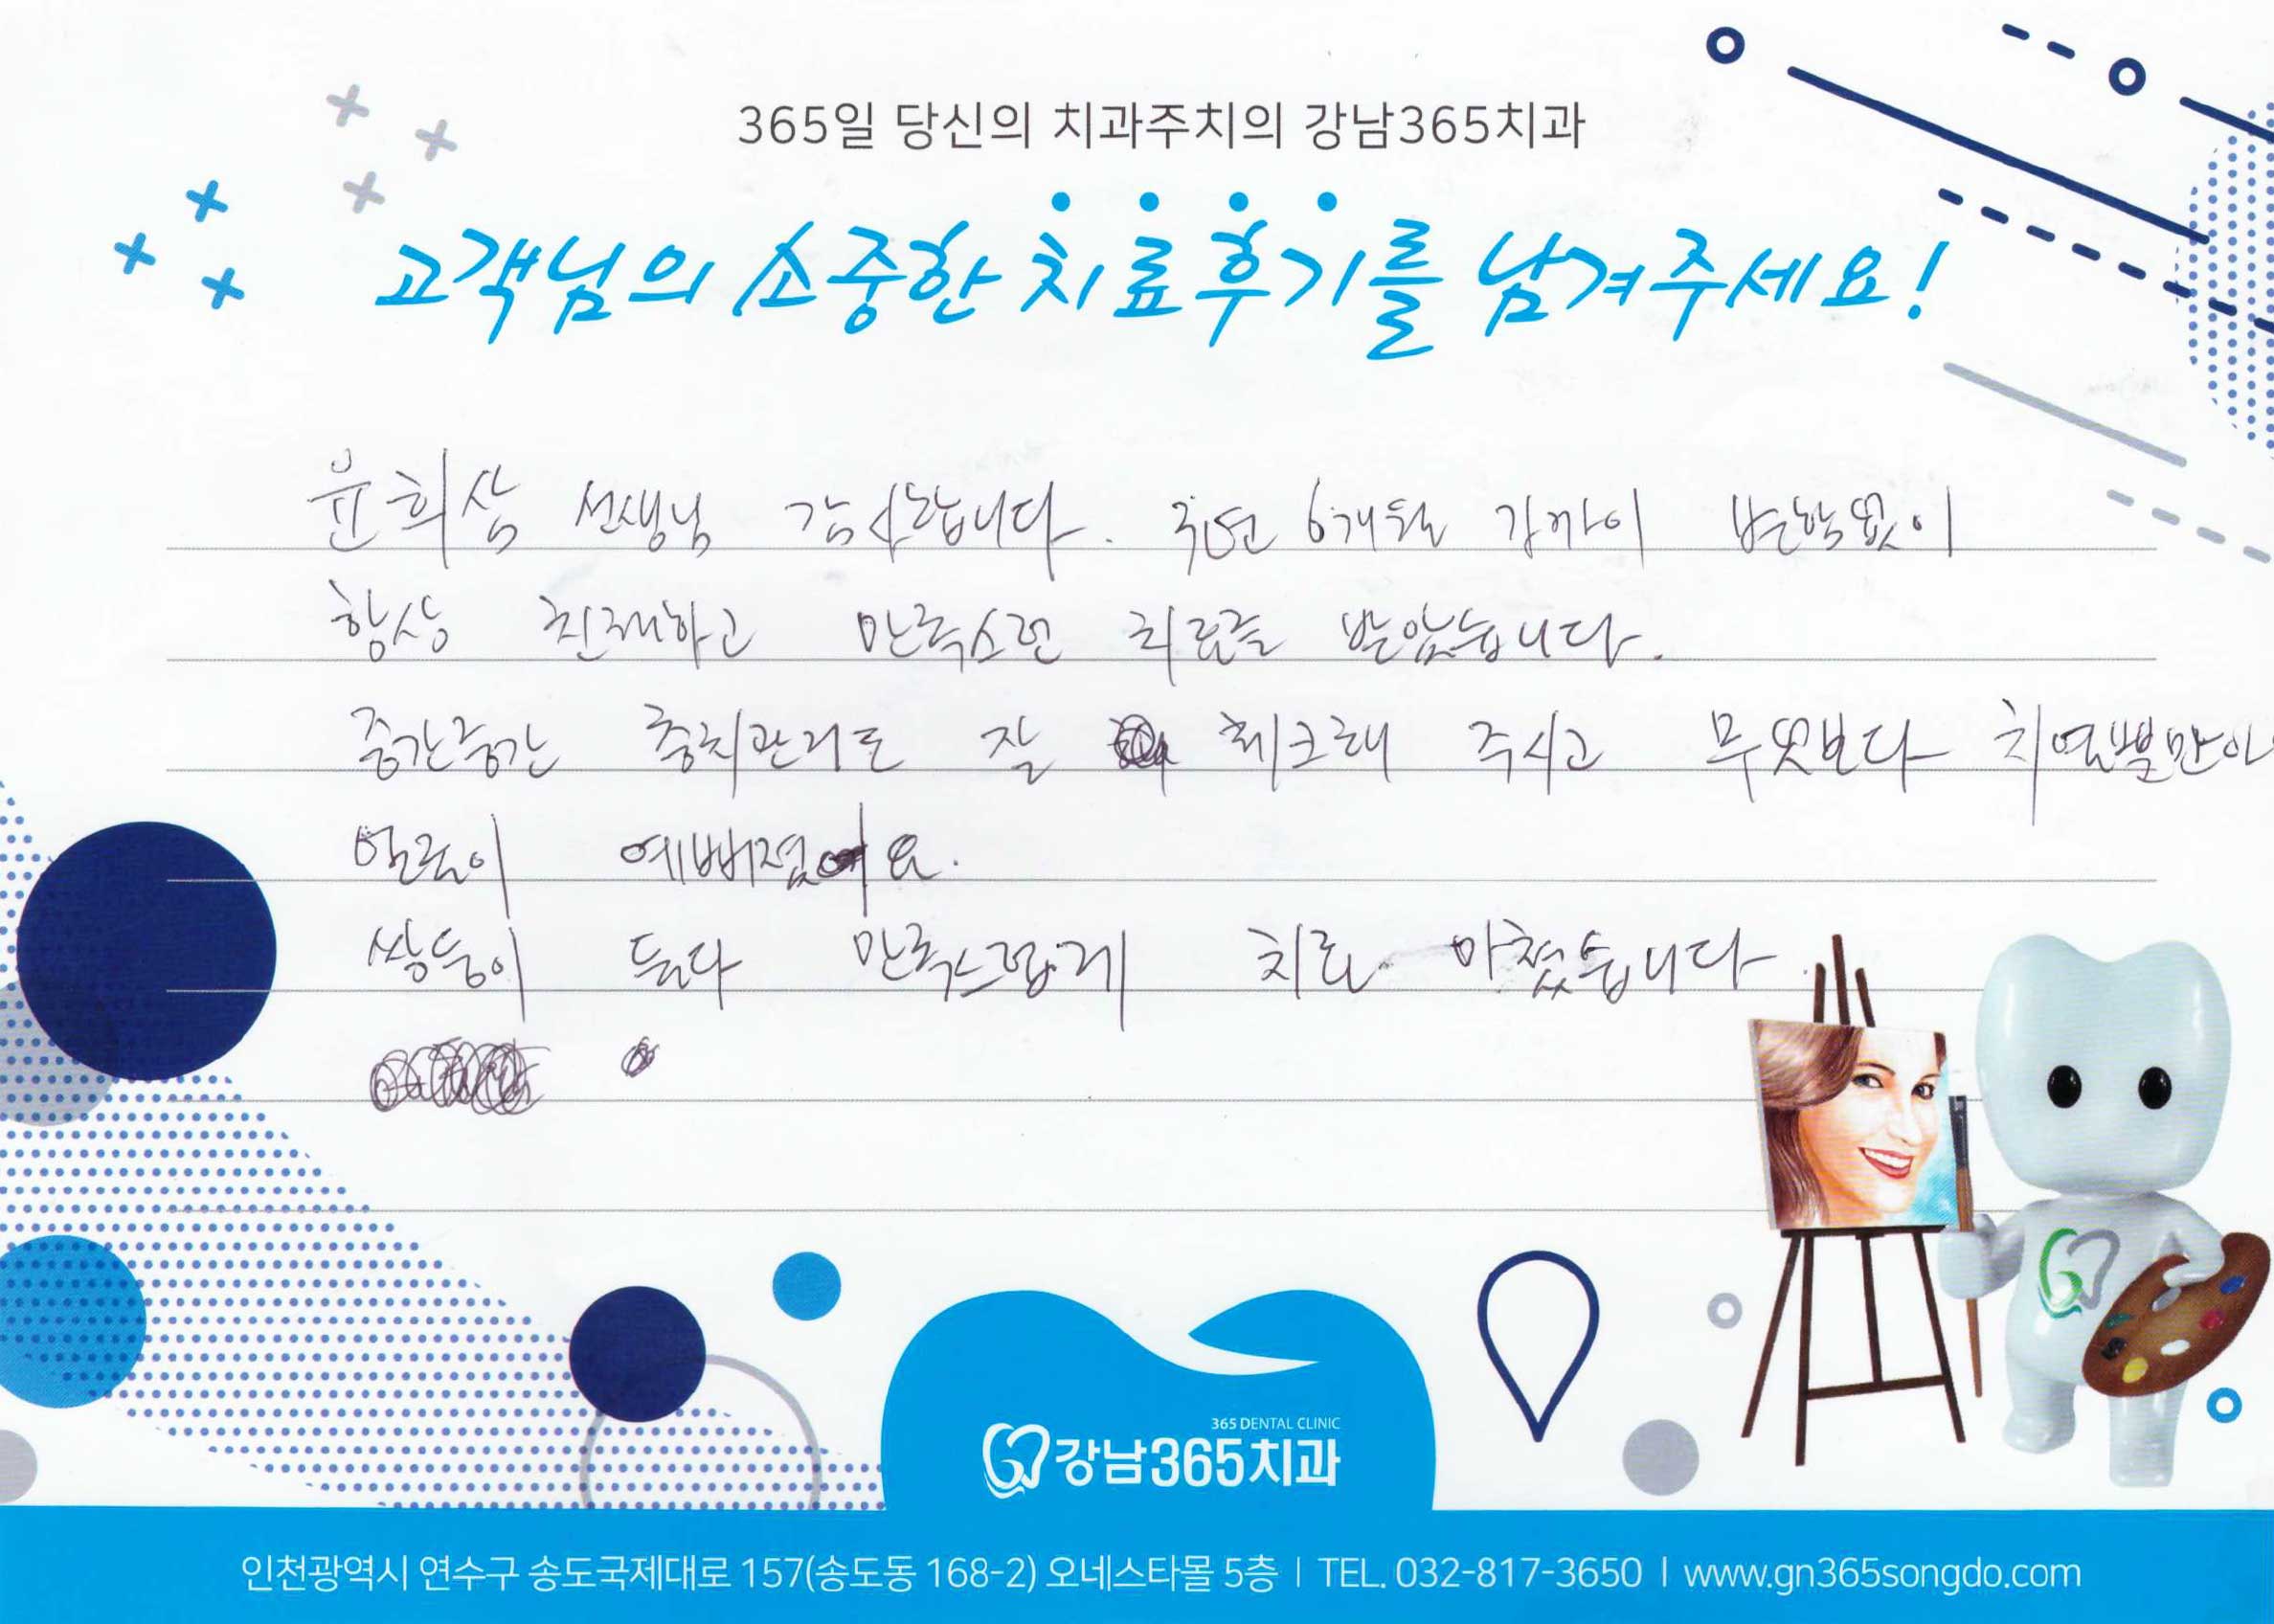 365일 당신의 치과주치의 강남365치과
고객님의 소중한 치료후기를 남겨주세요!
윤희상 선생님 감사합니다. 6개월 가까이 변함없이
항상 친절하고 만족스런 치료를 받았습니다.
중간중간 충치관리도 잘 체크해 주시고 무엇보다 치열뿐만아
얼굴이 예뻐졌어요.
쌍둥이 둘다 만족스럽게 치료 마쳤습니다.
365 DENTAL CLINIC
강남365치과
인천광역시 연수구 송도국제대로 157(송도동 168-2) 오네스타몰 5층 | TEL. 032-817-3650 | www.gn365songdo.com